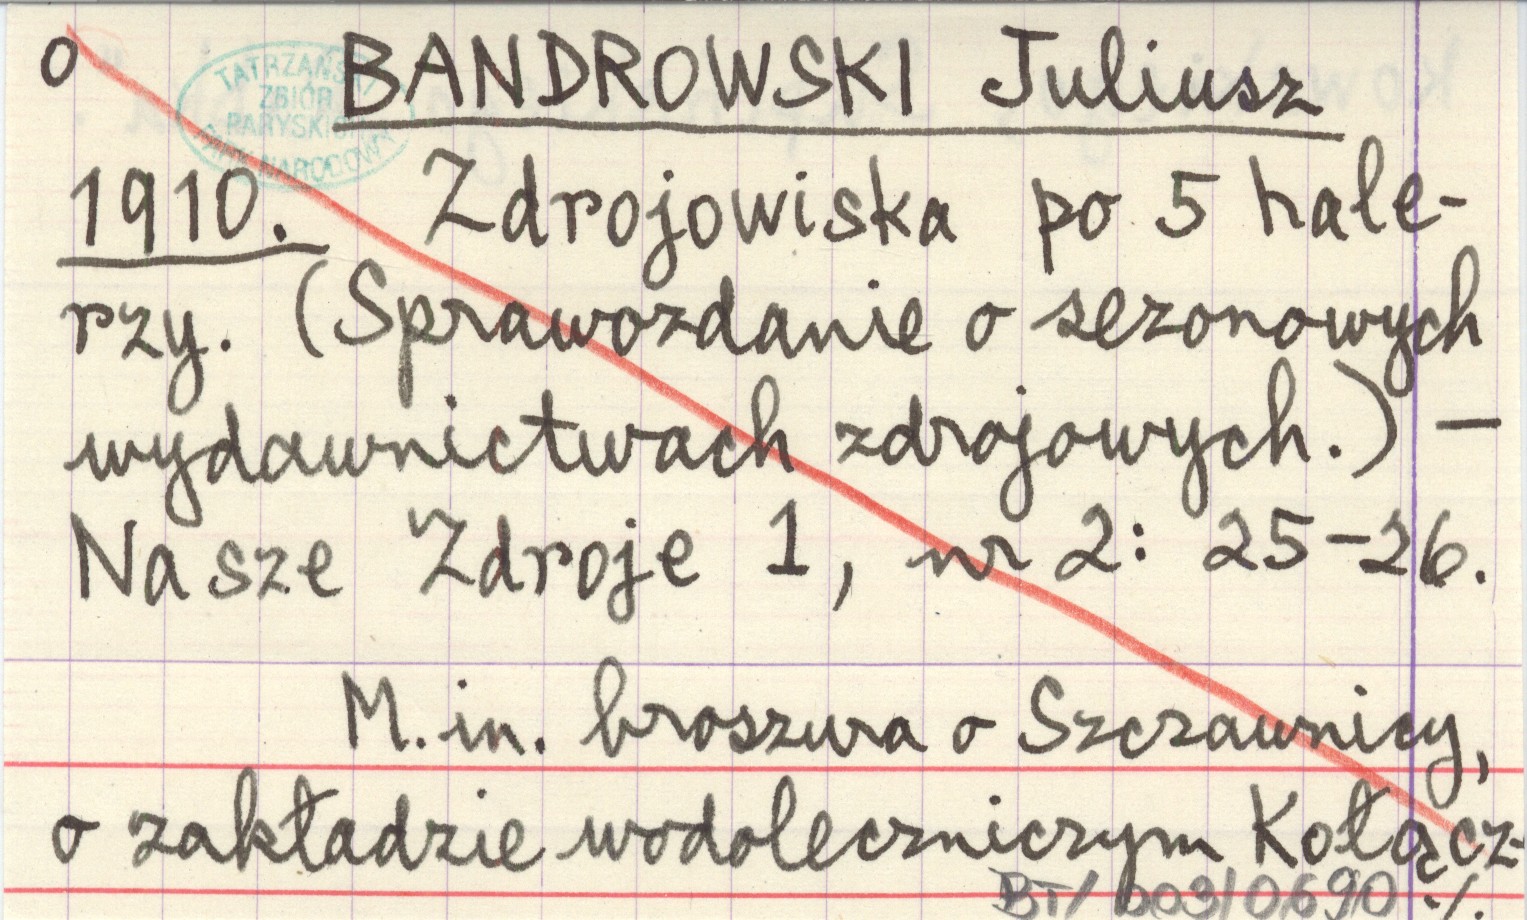 o BANDROWSKI Juliusz
TATRZAŃSKI
ZBIÓR
PARYSKICH
PARK NARODOWY
1910. Zdrojowiska po 5 hale-
rzy. (Sprawozdanie o sezonowych
wydawnictwach zdrojowych.) –
Nasze Zdroje 1, nr 2: 25-26.
M. in. broszura o Szczawnicy,
o zakładzie wodoleczniczym Kołącz-
BT/003/0690 ./.